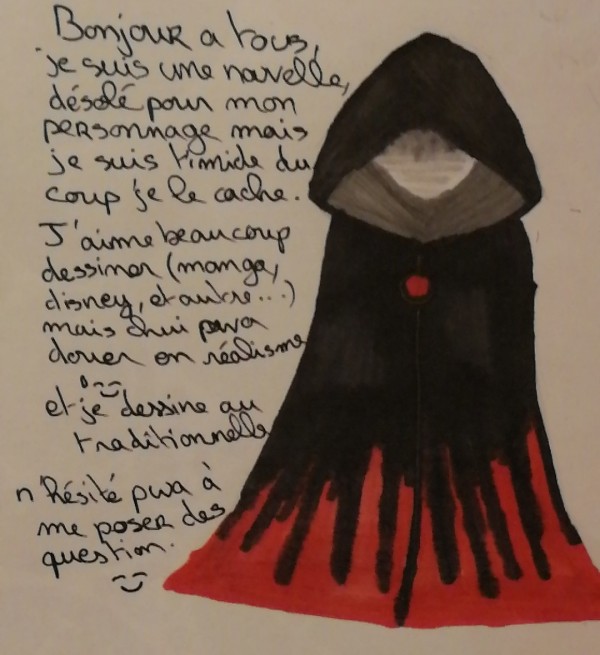 Bonjour a tous,
je suis une nouvelle,
désolé pour mon
personnage mais
je suis timide du
coup je le cache.
J'aime beaucoup
dessiner (manga,
disney, et autre...)
mais chui pwa
douer en réalisme
et je dessine au
traditionnelle
n'hésité pwa à
me poser des
question.